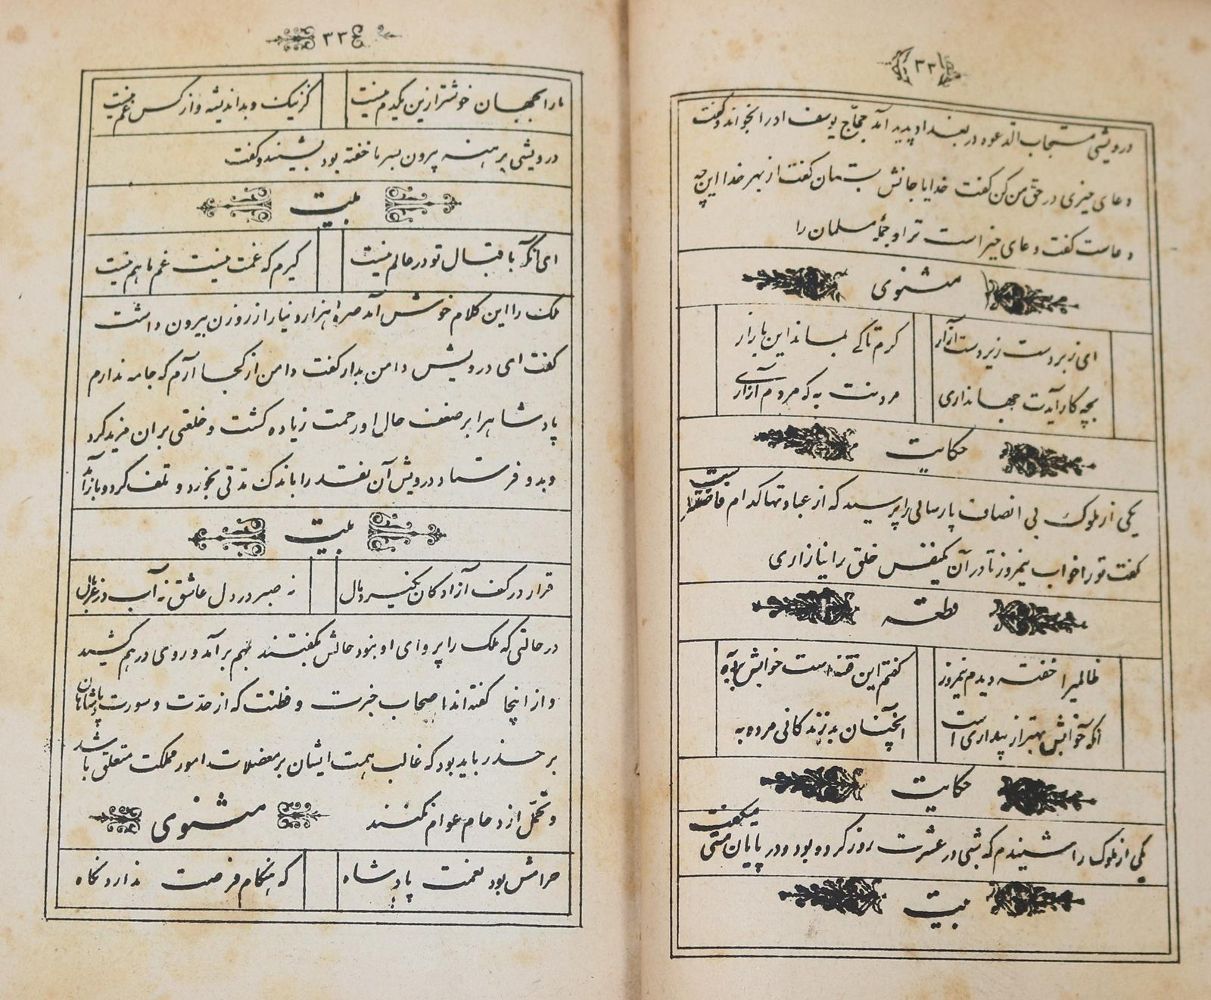 ۳۲
درویشی مستجاب الدعوه در بغداد پدید آمد حجاج یوسف او را بخواند و گفت
دعای خیری در حق من کن گفت خدایا جانش بستان گفت از بهر خدا این چه
دعاست گفت دعای خیر است ترا و جمله مسلمان را
مثنوی
ای زبردست زیردست آزار کرم تا کی بماند این بازار
بچه کار آیدت جهانداری مردنت به که مردم آزاری
حکایت
یکی از ملوک بی انصاف پارسائی را پرسید که از عبادتها کدام فاضلتر است
گفت تو را خواب نیمروز تا در آن یکنفس خلق را نیازاری
قطعه
ظالمیرا خفته دیدم نیمروز گفتم این فتنه است خوابش برده به
آنکه خوابش بهتر از بیداری است آنچنان بد زندگانی مرده به
حکایت
یکی از ملوک را شنیدم که شبی در عشرت روز کرده بود و در پایان مستی میگفت
بیت
۳۳
ما را بجهان خوشتر از این یکدم نیست کز نیک و بد اندیشه و از کس غم نیست
درویشی برهنه برون بسرما خفته بود بشنید و گفت
بیت
ای آنکه باقبال تو در عالم نیست گیرم که غمت نیست غم ما هم نیست
ملک را این کلام خوش آمد صره هزار دینار از روزن بیرون داشت
گفت ای درویش دامن بدار گفت دامن از کجا آرم که جامه ندارم
پادشاه را بر ضعف حال او رحمت زیاده گشت و خلعتی بران مزید کرد
و بدو فرستاد درویش آن نقد را باندک مدتی بخورد و تلف کرد و باز آمد
بیت
قرار در کف آزادگان نگیرد مال نه صبر در دل عاشق نه آب در غربال
در حالتی که ملک را پروای او نبود حالش بگفتند بهم برآمد و روی درهم کشید
و از اینجا گفته اند اصحاب خبرت و فطنت که از حدت و سورت پادشاهان
بر حذر باید بود که غالب همت ایشان بر معضلات امور مملکت متعلق باشد
و تحمل ازدحام عوام نکنند مثنوی
حرامش بود نعمت پادشاه که هنگام فرصت ندارد نگاه